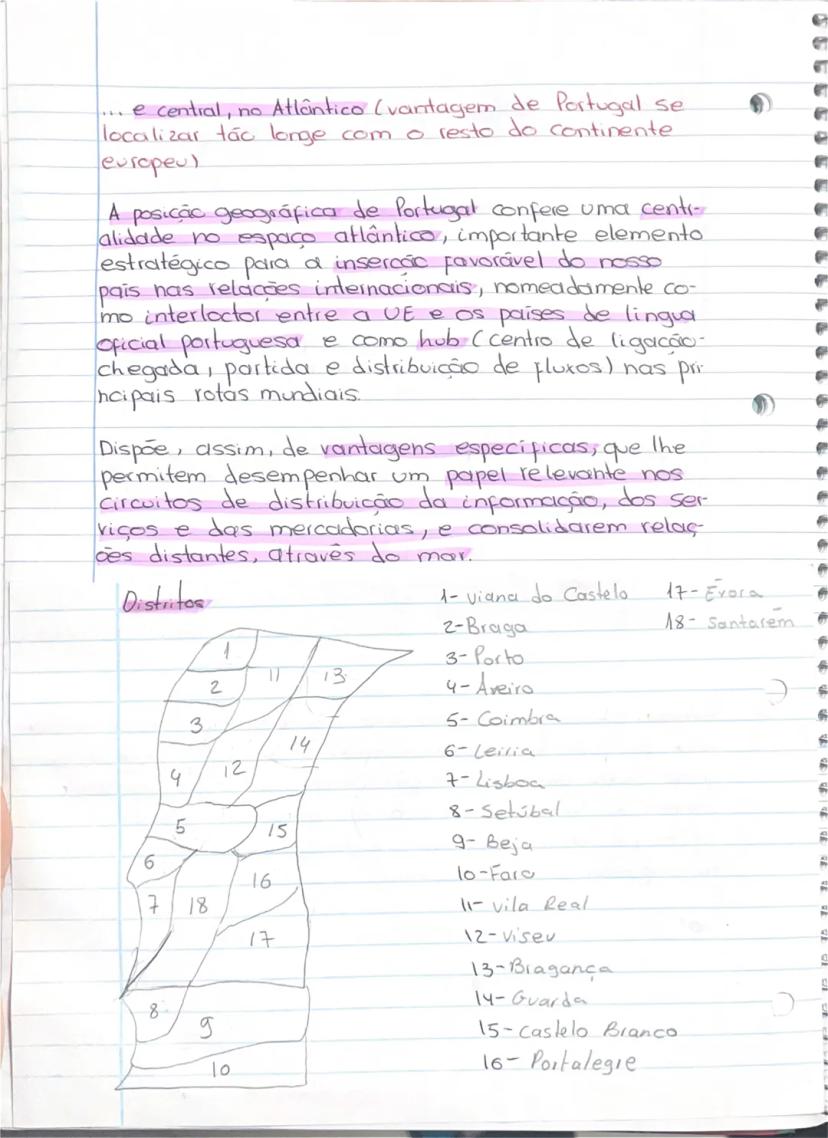 ... e central, no Atlântico (vantagem de Portugal se
localizar tão longe com o resto do continente
europeu)
A posição geográfica de Portugal confere uma centr-
alidade no espaço atlântico, importante elemento
estratégico para a inserção favorável do nosso
país nas relações internacionais, nomeadamente co-
mo interloctor entre a UE e os países de lingua
oficial portuguesa e como hub (centro de ligação-
chegada, partida e distribuição de fluxos) nas pri
ncipais rotas mundiais.
Dispõe, assim, de vantagens específicas, que lhe
permitem desempenhar um papel relevante nos
circuitos de distribuição da informação, dos ser-
viços e das mercadorias, e consolidarem relaç-
ões distantes, através do mar.
Distritos
1- Viana do Castelo
2- Braga
3- Porto
4- Aveiro
5- Coimbra
6- Leiria
7- Lisboa
8- Setúbal
9- Beja
10- Faro
11- Vila Real
12- Viseu
13- Bragança
14- Guarda
15- Castelo Branco
16- Portalegre
17- Évora
18- Santarém
1
2
11
13
3
14
4
12
5
15
6
16
7
18
17
8
9
10